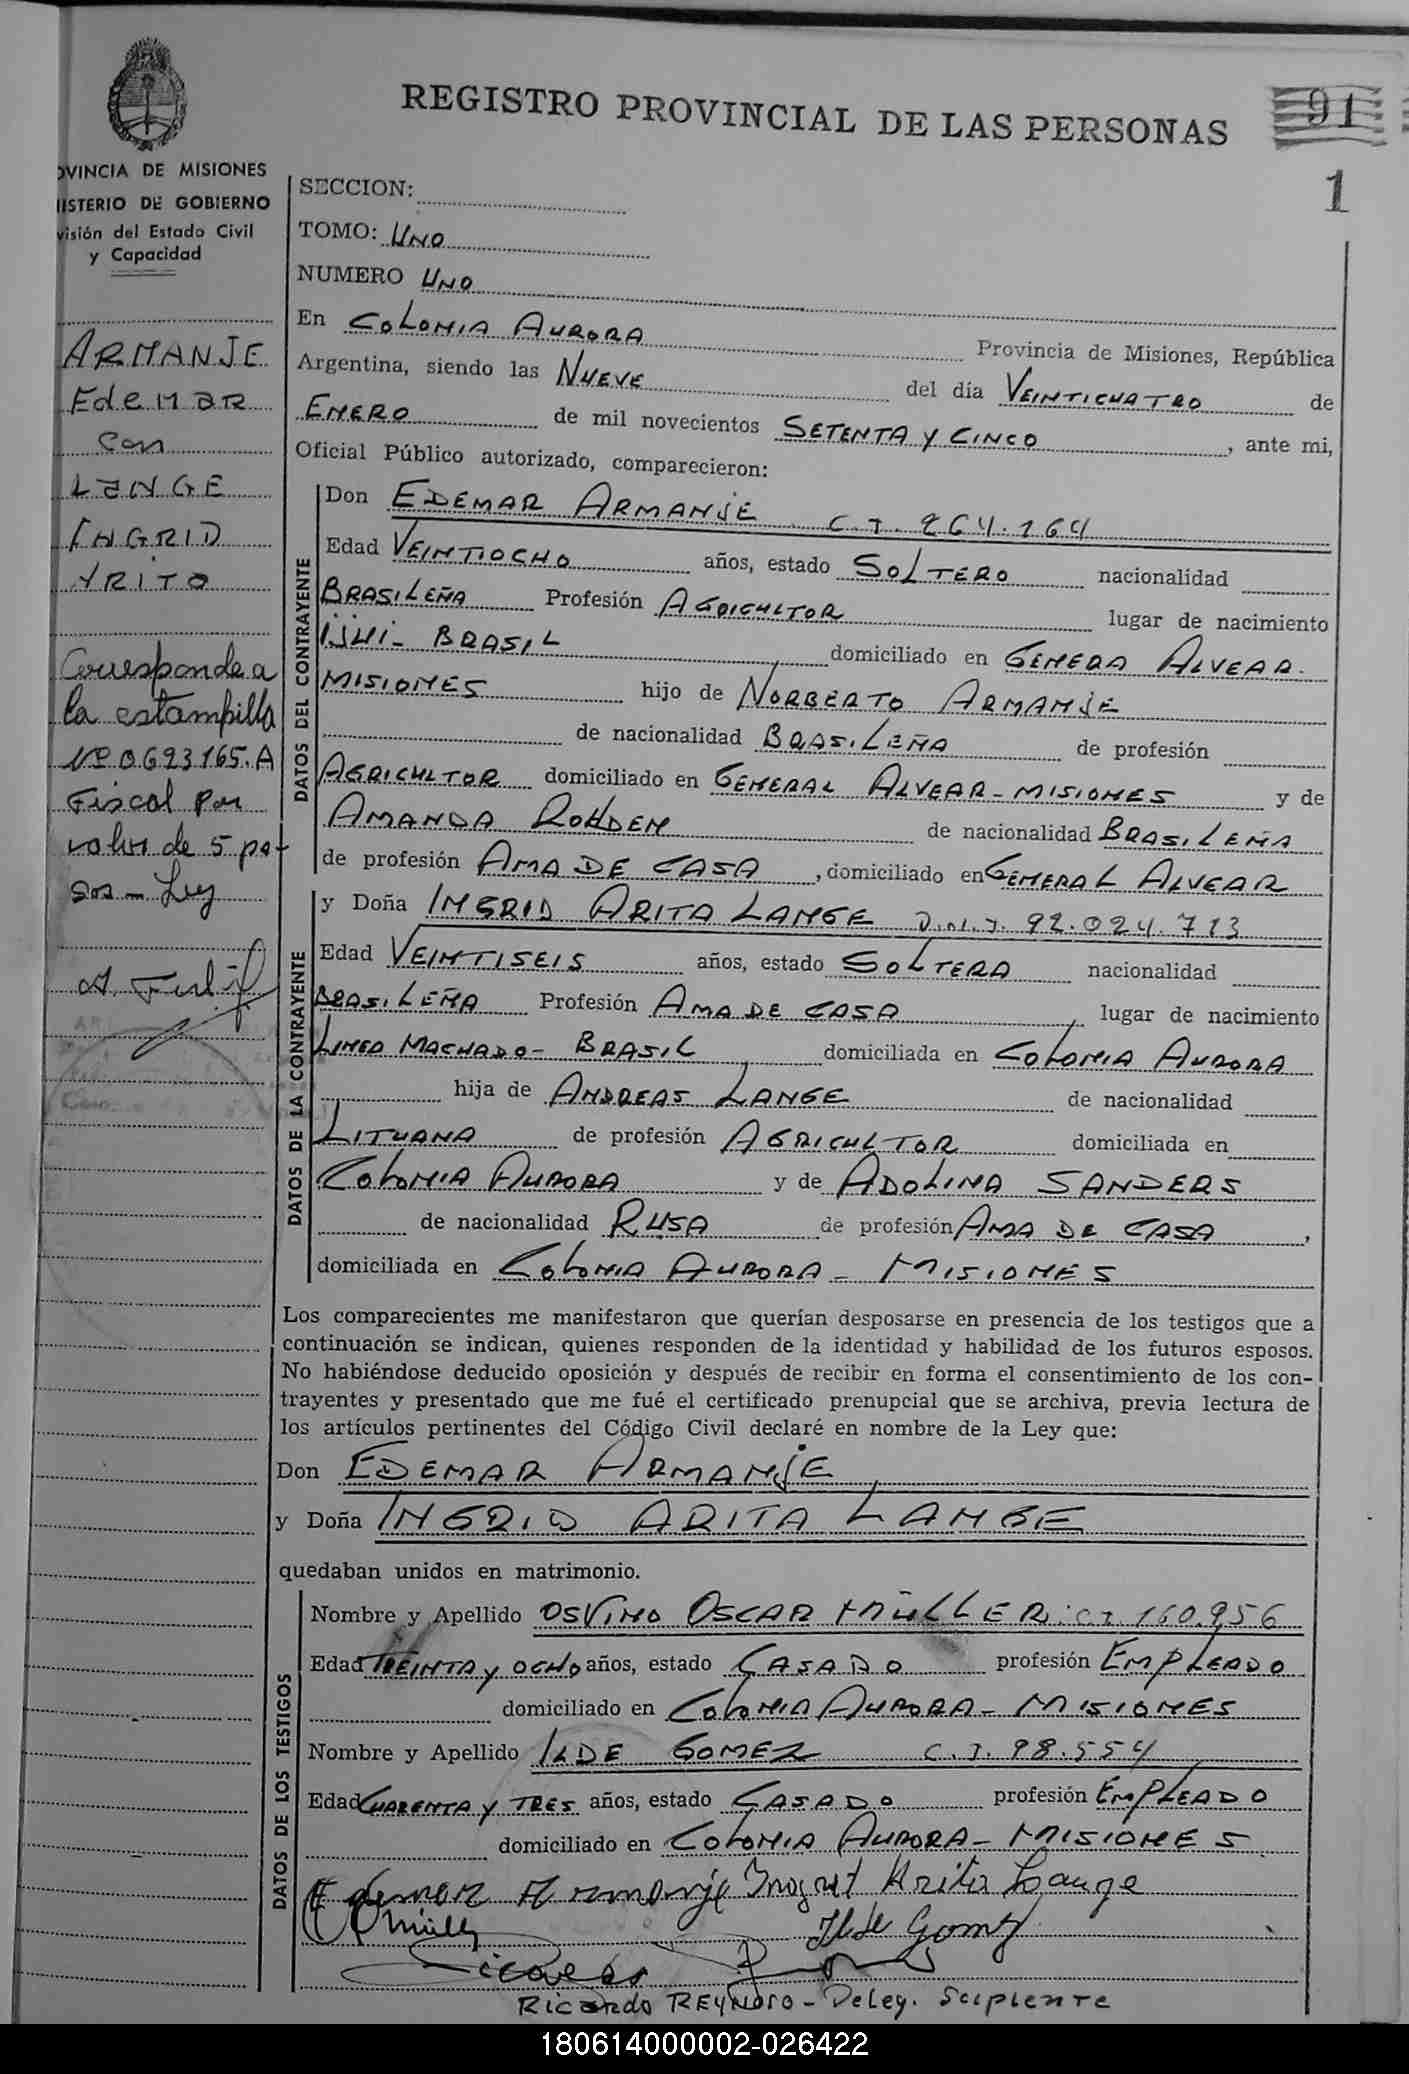 REGISTRO PROVINCIAL DE LAS PERSONAS
91
1
OVINCIA DE MISIONES
NISTERIO DE GOBIERNO
visión del Estado Civil
y Capacidad
ARMANJE
Edemar
con
LANGE
INGRID
ARITA
Corresponde a
la estampilla
Nº 0693165.A
Fiscal por
valor de 5 pe-
sos-Ley
SECCION:
TOMO: UNO
NUMERO UNO
En COLONIA AURORA Provincia de Misiones, República
Argentina, siendo las NUEVE del día VEINTICUATRO de
ENERO de mil novecientos SETENTA Y CINCO, ante mi,
Oficial Público autorizado, comparecieron:
DATOS DEL CONTRAYENTE
Don EDEMAR ARMANJE C.I. 264.164
Edad VEINTIOCHO años, estado SOLTERO nacionalidad
BRASILEÑA Profesión AGRICULTOR lugar de nacimiento
IJUI- BRASIL domiciliado en GENERA ALVEAR.
MISIONES hijo de NORBERTO ARMANJE
de nacionalidad BRASILEÑA de profesión
AGRICULTOR domiciliado en GENERAL ALVEAR-MISIONES y de
AMANDA ROHDEN de nacionalidad BRASILEÑA
de profesión AMA DE CASA, domiciliado en GENERAL ALVEAR
DATOS DE LA CONTRAYENTE
y Doña INGRID ARITA LANGE D.N.I. 92.024.713
Edad VEINTISEIS años, estado SOLTERA nacionalidad
BRASILEÑA Profesión AMA DE CASA lugar de nacimiento
LINEA MACHADO- BRASIL domiciliada en COLONIA AURORA
hija de ANDREAS LANGE de nacionalidad
LITUANA de profesión AGRICULTOR domiciliada en
COLONIA AURORA y de ADOLINA SANDERS
de nacionalidad RUSA de profesión AMA DE CASA,
domiciliada en COLONIA AURORA - MISIONES
Los comparecientes me manifestaron que querían desposarse en presencia de los testigos que a
continuación se indican, quienes responden de la identidad y habilidad de los futuros esposos.
No habiéndose deducido oposición y después de recibir en forma el consentimiento de los con-
trayentes y presentado que me fué el certificado prenupcial que se archiva, previa lectura de
los artículos pertinentes del Código Civil declaré en nombre de la Ley que:
Don EDEMAR ARMANJE
y Doña INGRID ARITA LANGE
quedaban unidos en matrimonio.
DATOS DE LOS TESTIGOS
Nombre y Apellido OSVINO OSCAR MÜLLER: C.I. 160.956
Edad TREINTA Y OCHO años, estado CASADO profesión EMPLEADO
domiciliado en COLONIA AURORA- MISIONES
Nombre y Apellido ILDE GOMEZ C.I. 98.554
Edad CUARENTA Y TRES años, estado CASADO profesión EMPLEADO
domiciliado en COLONIA AURORA- MISIONES
Edemar Armanje Ingrit Arita Lange
Ilde Gomez
Ricardo REYNOSO - Deleg. Suplente
180614000002-026422